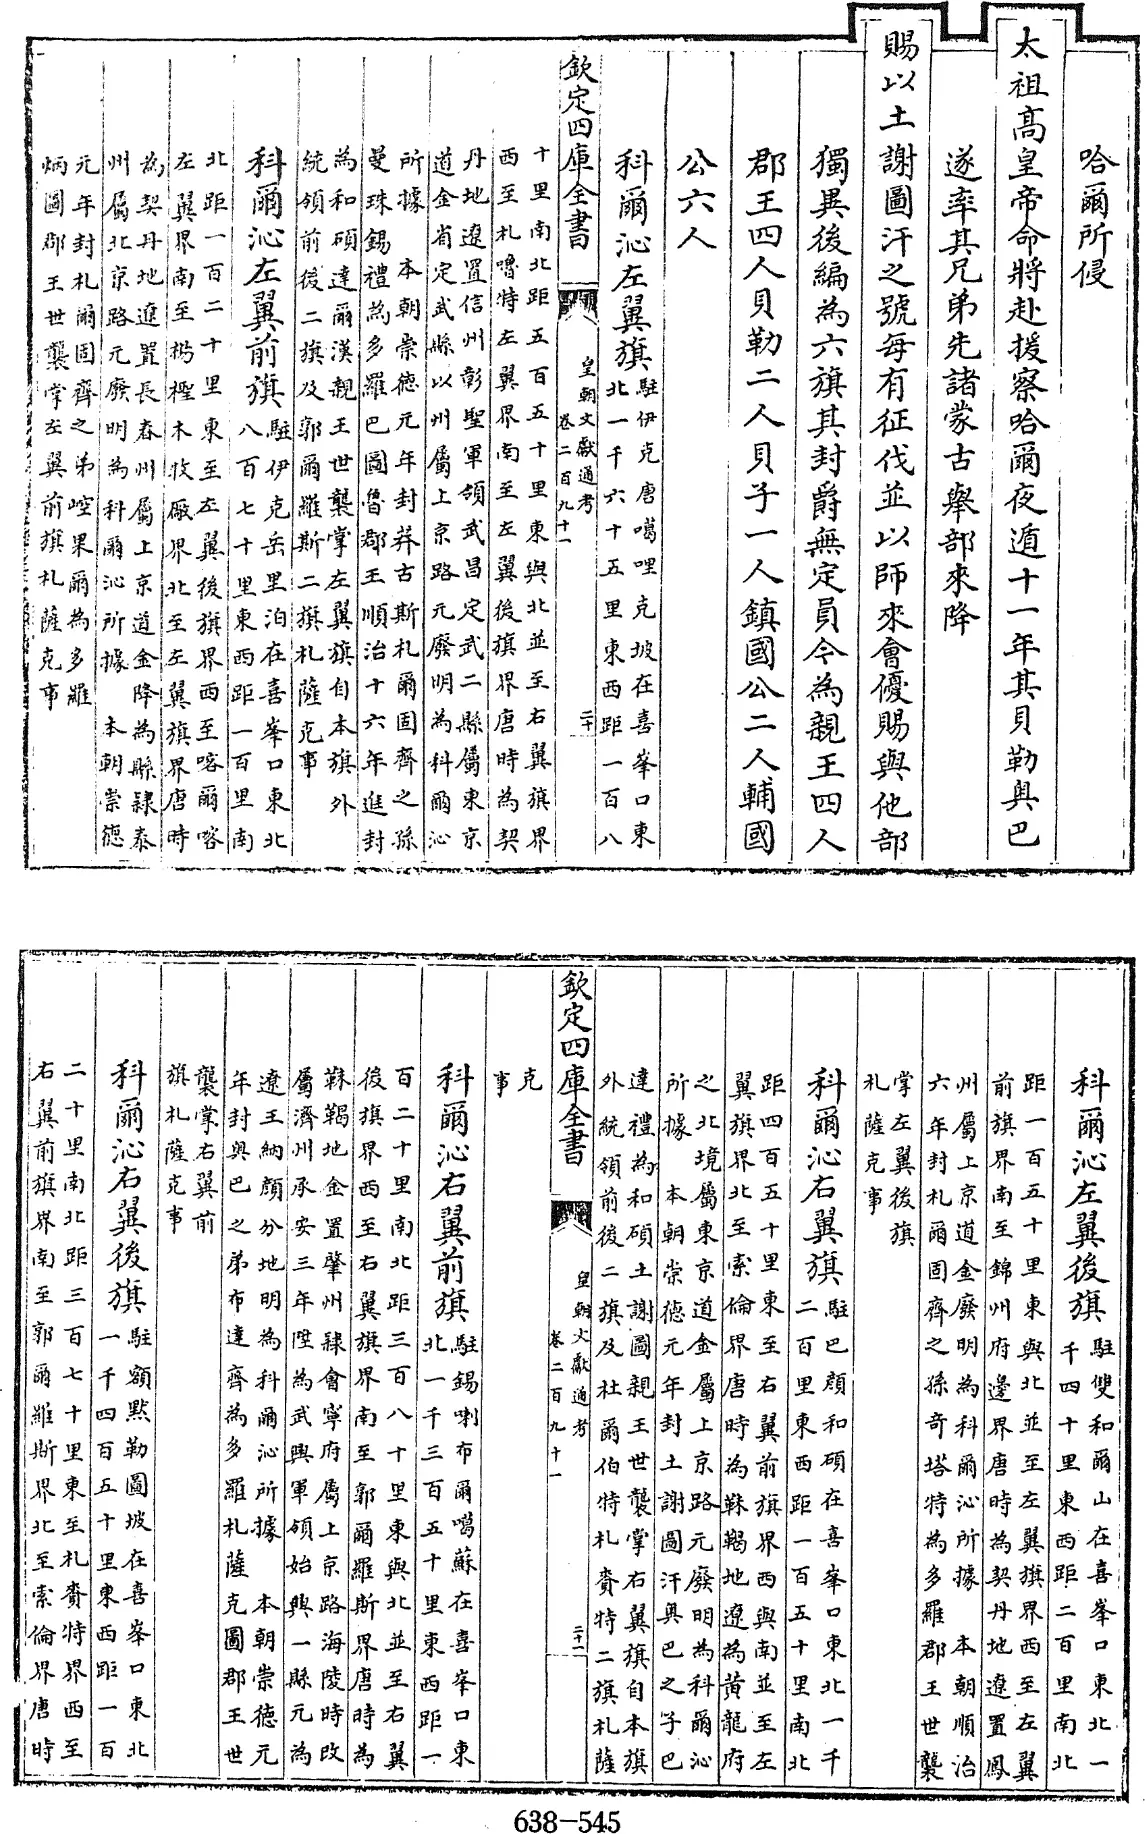 哈爾所侵
太祖高皇帝命將赴援察哈爾夜遁十一年其貝勒奥巴
遂率其兄弟先諸蒙古舉部來降
賜以土謝圖汗之號每有征伐並以師來會優賜與他部
獨異後編為六旗其封爵無定員今為親王四人
郡王四人貝勒二人貝子一人鎮國公二人輔國
公六人
科爾沁左翼旗駐伊克唐噶哩克坡在喜峯口東
北一千六十五里東西距一百八
欽定四庫全書
皇朝文獻通考
卷二百九十一
二十
十里南北距五百五十里東與北並至右翼旗界
西至札嚕特左翼界南至左翼後旗界唐時為契
丹地遼置信州彰聖軍領武昌定武二縣屬東京
道金省定武縣以州屬上京路元廢明為科爾沁
所據　本朝崇德元年封莽古斯札爾固齊之孫
曼珠錫禮為多羅巴圖魯郡王順治十六年進封
為和碩達爾漢親王世襲掌左翼旗自本旗外
統領前後二旗及郭爾羅斯二旗札薩克事
科爾沁左翼前旗駐伊克岳里泊在喜峯口東北
八百七十里東西距一百里南
北距一百二十里東至左翼後旗界西至喀爾喀
左翼界南至楊檉木牧厰界北至左翼旗界唐時
為契丹地遼置長春州屬上京道金降為縣隷泰
州屬北京路元廢明為科爾沁所據　本朝崇德
元年封札爾固齊之弟崆果爾為多羅
炳圖郡王世襲掌左翼前旗札薩克事
科爾沁左翼後旗駐雙和爾山在喜峯口東北一
千四十里東西距二百里南北
距一百五十里東與北並至左翼旗界西至左翼
前旗界南至錦州府邊界唐時為契丹地遼置鳳
州屬上京道金廢明為科爾沁所據　本朝順治
六年封札爾固齊之孫奇塔特為多羅郡王世襲
掌左翼後旗
札薩克事
科爾沁右翼旗駐巴顔和碩在喜峯口東北一千
二百里東西距一百五十里南北
距四百五十里東至右翼前旗界西與南並至左
翼旗界北至索倫界唐時為靺鞨地遼為黄龍府
之北境屬東京道金屬上京路元廢明為科爾沁
所據　本朝崇德元年封土謝圖汗奥巴之子巴
達禮為和碩土謝圖親王世襲掌右翼旗自本旗
外統領前後二旗及杜爾伯特札賚特二旗札薩
欽定四庫全書
皇朝文獻通考
卷二百九十一
二十一
克
事
科爾沁右翼前旗駐錫喇布爾噶蘇在喜峯口東
北一千三百五十里東西距一
百二十里南北距三百八十里東與北並至右翼
後旗界西至右翼旗界南至郭爾羅斯界唐時為
靺鞨地金置肇州隷會寧府屬上京路海陵時改
屬濟州承安三年陞為武興軍領始興一縣元為
遼王納顔分地明為科爾沁所據　本朝崇德元
年封奥巴之弟布達齊為多羅札薩克圖郡王世
襲掌右翼前
旗札薩克事
科爾沁右翼後旗駐額默勒圖坡在喜峯口東北
一千四百五十里東西距一百
二十里南北距三百七十里東至札賚特界西至
右翼前旗界南至郭爾羅斯界北至索倫界唐時
638-545